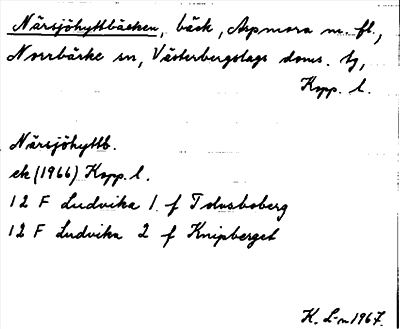 Närsjöhyttbäcken, bäck, Aspmora m. fl.,
Norrbärke sn, Västerbergslags doms. tg,
Kopp. l.
Närsjöhyttb.
ek (1966) Kopp. l.
12 F Ludvika 1 f Tolvsboberg
12 F Ludvika 2 f Knipberget
K. L-m 1967.